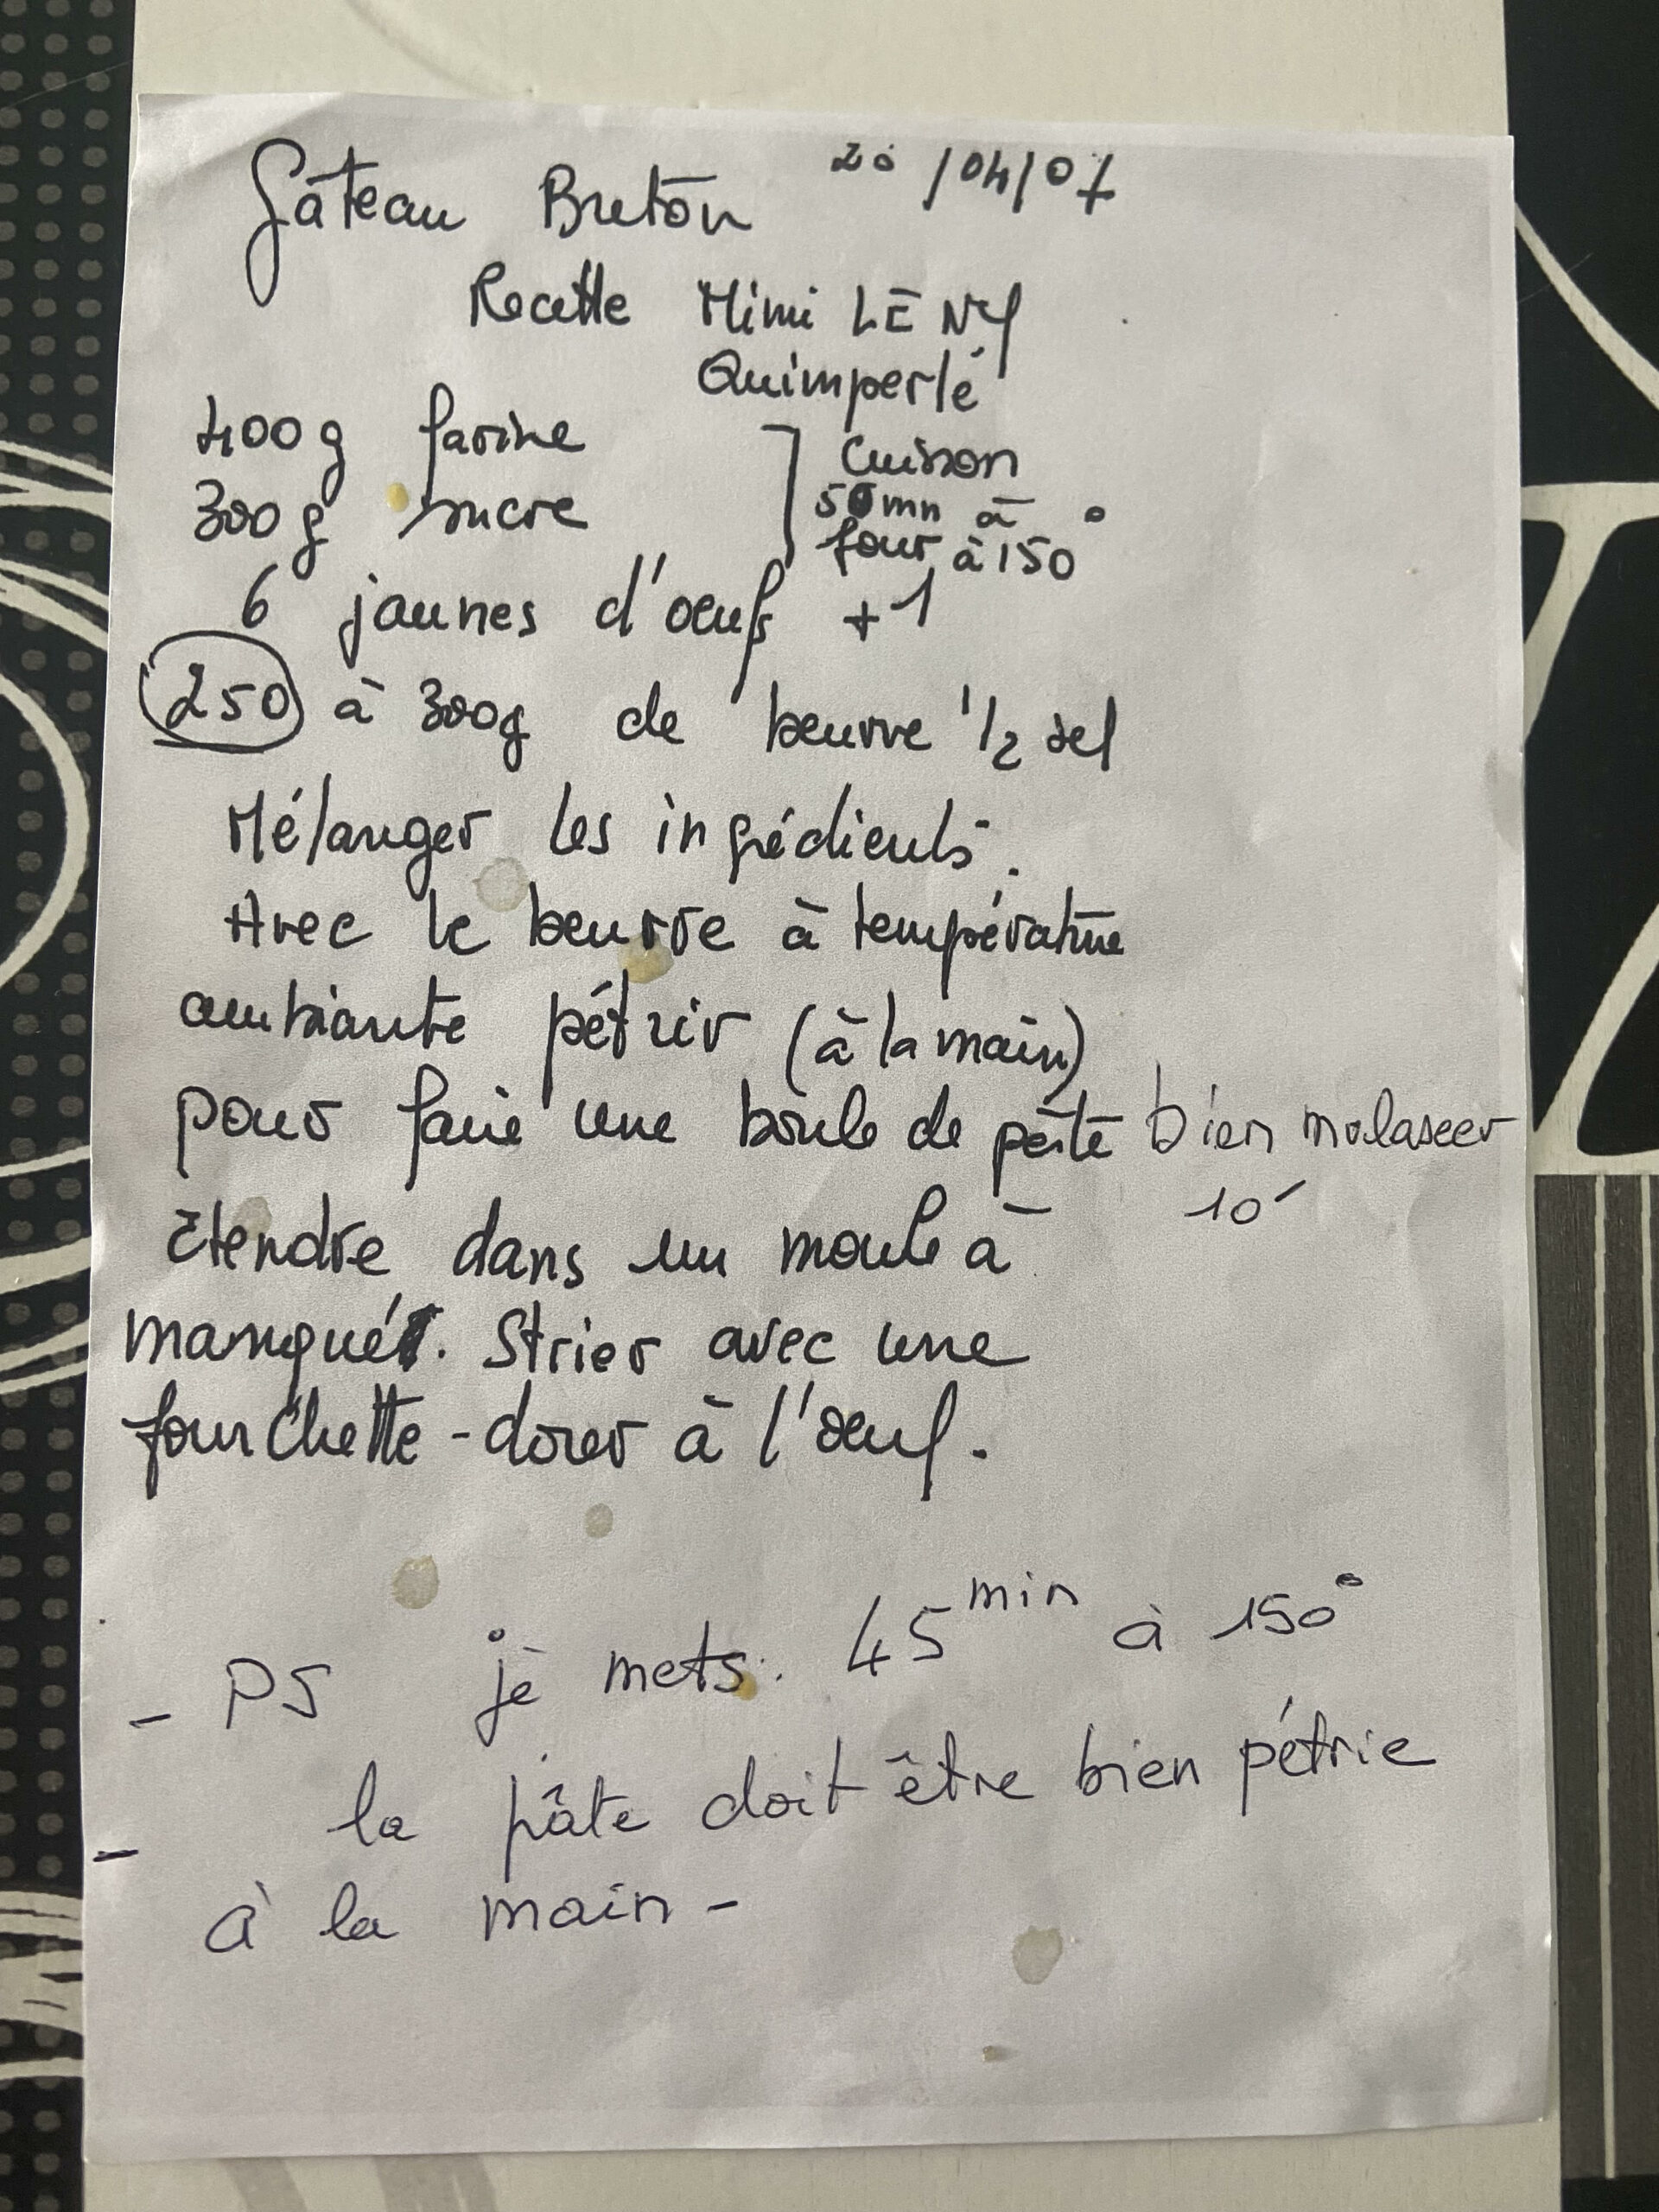 Gâteau Breton 20/04/07
Recette Mimi LE NY
Quimperlé
400g farine
300g sucre
Cuisson
50mn à
four à 150°
6 jaunes d'oeufs +1
250 à 300g de beurre 1/2 sel
Mélanger les ingrédients.
Avec le beurre à température
ambiante pétrir (à la main)
pour faire une boule de pâte bien malaxer
10'
Etendre dans un moule à
manqué. Strier avec une
fourchette - dorer à l'oeuf.
- PS je mets. 45 min à 150°
- la pâte doit être bien pétrie
à la main -